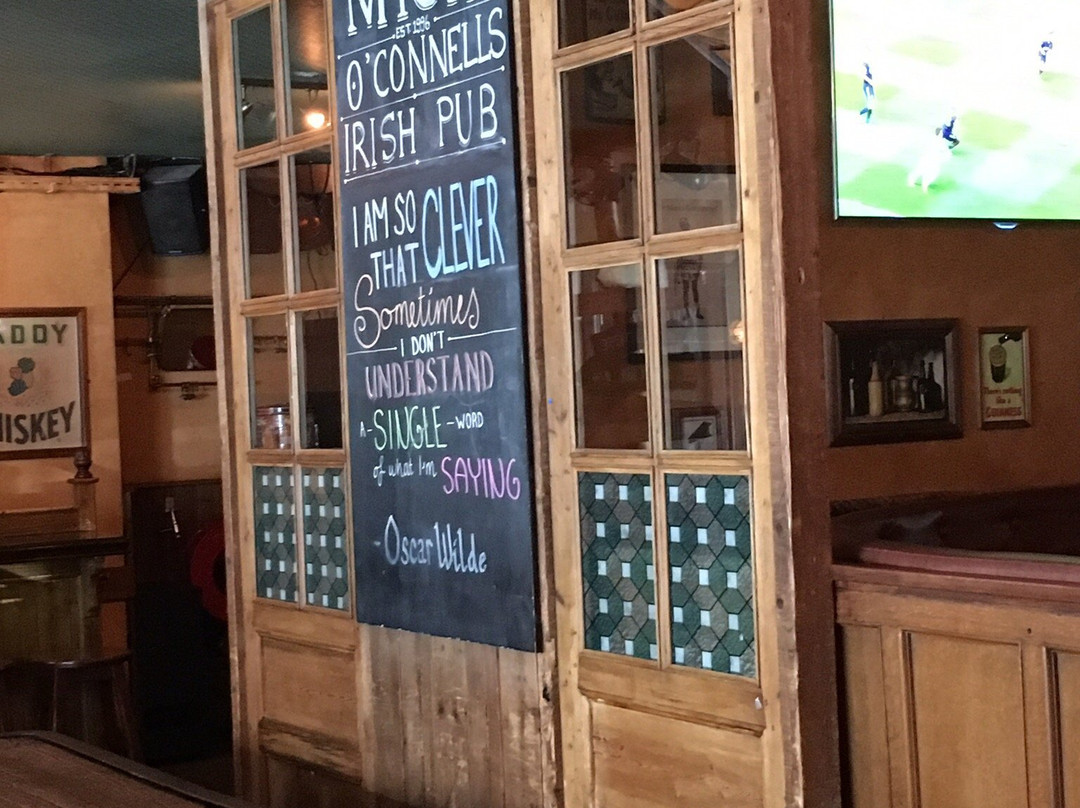 EST 1996
O'CONNELLS
IRISH PUB
I AM SO
THAT CLEVER
Sometimes
I DON'T
UNDERSTAND
A-SINGLE-WORD
of what I'm SAYING
-Oscar Wilde
ADDY
HISKEY
GUINNESS